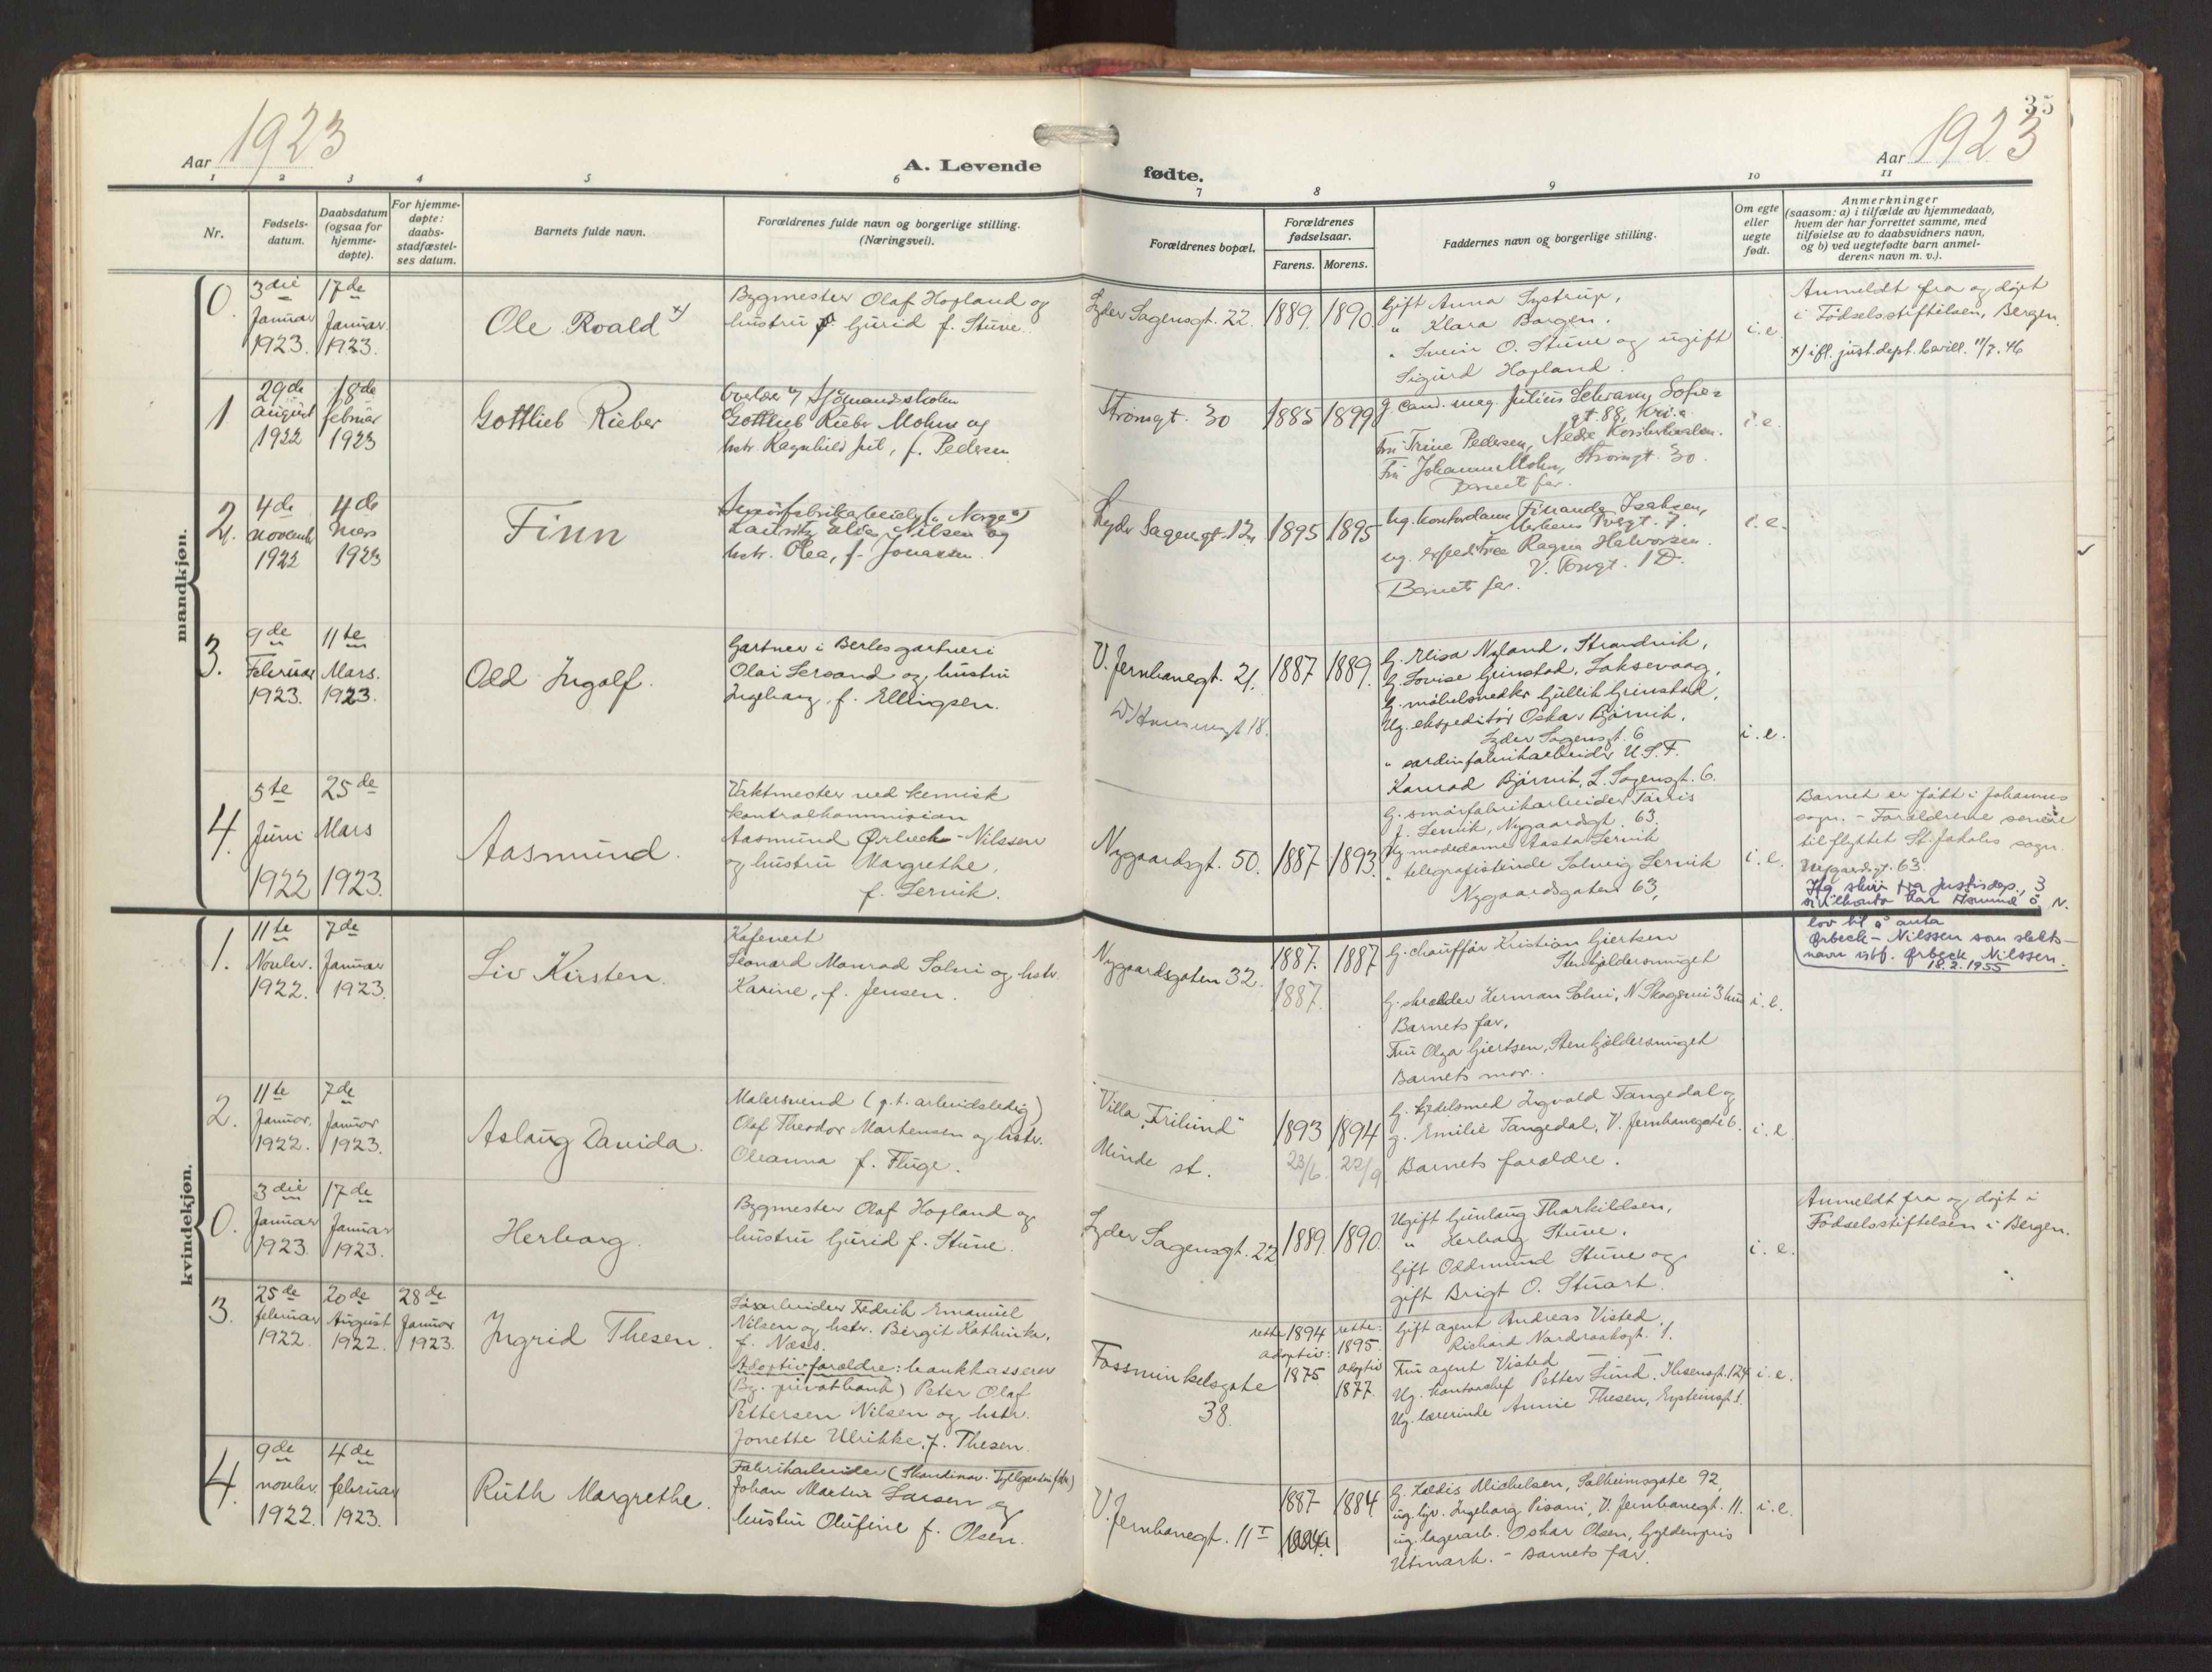 35
Aar 1923
A. Levende fødte.
Aar 1923
1 2 3 4 5 6 7 8 9 10 11
Nr.
Fødsels-
datum.
Daabsdatum
(ogsaa for
hjemme-
døpte).
For hjemme-
døpte:
daabs-
stadfæstel-
ses datum.
Barnets fulde navn.
Forældrenes fulde navn og borgerlige stilling.
(Næringsvei).
Forældrenes bopæl.
Forældrenes
fødselsaar.
Farens. Morens.
Faddernes navn og borgerlige stilling.
Om egte
eller
uegte
født.
Anmerkninger
(saasom: a) i tilfælde av hjemmedaab,
hvem der har forrettet samme, med
tilføielse av to daabsvidners navn,
og b) ved uegtefødte barn anmel-
derens navn m. v.).
mandkjøn.
0.
3die
Januar
1923.
17de
Januar
1923.
Ole Roald x)
Bygmester Olaf Hopland og
hustru Gurid f. Stuve.
Lyder Sagensgt. 22.
1889. 1890.
Gift Anna Systrup,
" Klara Borgen,
" Svein O. Stuve og ugift
Sigurd Hopland.
i.e.
Anmeldt fra og døpt
i Fødselsstiftelsen, Bergen.
x) ifl. just.dept. bevill. 11/7.46
1
29de
august
1922
18de
februar
1923
Gottlieb Rieber
Sjømandsskolen
Gottlieb Rieber Mohn og
hstr. Ragnhild Juel, f. Pedersen
Strømgt. 30
1885 1899
g. cand. mag. Julius Schram, Sofies
gt. 88, Kr.ia.
Fru Trine Pedersen, Nedre
Fru Johanne Mohn, Strømgt. 30.
Barnets far.
i.e.
2.
4de
novembr
1922
4de
mars
1923
Finn
Smørfabrikarbeider ("Norge")
Lauritz Nilsen og
hstr. Olea, f. Jonassen.
Lyder Sagensgt. 12
1895 1895
Ug. kontordame Fernanda Isaksen,
Torvgt. 7.
ug. Ragna Halvorsen.
V. Torvgt. 1 D.
Barnets far.
i.e.
3.
9de
Februar
1923.
11te
Mars.
1923.
Odd Ingolf.
Gartner i Berles gartneri
Olai Sersand og hustru
Ingeborg, f. Ellingsen.
V. Jernbanegt. 21.
18.
1887 1889.
G. Elisa Nyland, Strandvik,
G. Lovise Grinstad, Laksevaag,
G. møbelsnedker Gullik Grinstad,
Ug. ekspeditør Oskar Bjørvik,
Lyder Sagensgt. 6
" sardinfabrikarbeider U.S.F.
Konrad Bjørvik, L. Sagensgt. 6.
i.e.
4.
5te
Juni
1922
25de
Mars
1923.
Aasmund.
Vaktmester ved kemisk
kontrolkommission
Aasmund Ørbeck-Nilssen
og hustru Margrethe,
f. Lervik.
Nygaardsgt. 50.
1887 1893.
G. smørfabrikarbeider
J. Lervik, Nygaardsgt. 63.
Ug. modedame Aasta Lervik
" telegrafistinde Solveig Lervik
Nygaardsgaten 63,
i.e.
Barnet er født i Johannes
sogn. - Forældrene senere
tilflyttet St. Jakobs sogn.
Nygaardsgt. 63.
Ifg. skriv fra Justisdep., 3
sivilkontor har Asmund Ø. N.
lov til å anta
Ørbech-Nilssen som slekts-
navn istf. Ørbeck Nilssen.
18.2.1955
kvindekjøn.
1.
11te
Novbr.
1922.
7de
Januar
1923.
Liv Kirsten.
Kafevert
Leonard Monrad Solvi og hstr.
Karine, f. Jensen.
Nygaardsgaten 32.
1887. 1887
1887.
G. chauffør Kristian Giertsen
Stenkjeldersmuget
G. skrædder Herman Solvi, N. Skogevei 3
Barnets far,
Fru Olga Giertsen, Stenkjeldersmuget
Barnets mor.
i.e.
2.
11te
Januar.
1922.
7de
Januar
1923.
Aslaug Davida.
Malersvend (p.t. arbeidsledig)
Olaf Theodor Martensen og hstr.
Oleanna f. Fluge.
Villa "Frilund"
Minde st.
1893 1894
23/6. 22/9
G. kjedelsmed Ingvald Tangedal og
g. Emilie Tangedal, V. Jernbanegate 6.
Barnets forældre.
i.e.
0.
3die
Januar
1923.
17de
Januar
1923.
Herborg.
Bygmester Olaf Hopland og
hustru Gurid f. Stuve.
Lyder Sagensgt. 22
1889. 1890.
Ugift Gunlaug Tharkildsen,
" Herborg Stuve,
Gift Oddmund Stuve og
gift Brigt O. Stuart.
i.e.
Anmeldt fra og døpt i
Fødselsstiftelsen i Bergen.
3.
25de
februar
1922.
20de
August
1922.
28de
Januar
1923.
Ingrid Thesen.
Løsarbeider Fredrik Emanuel
Nilsen og hstr. Birgit Kathinka,
f. Næss.
Adoptivforældre: bankkasserer
(Bg. privatbank) Peter Olaf
Pettersen Nilsen og hstr.
Jonette Ulrikke, f. Thesen.
Fossminkelsgate
38.
rette 1894
adoptiv:
1875.
rette:
1895.
adoptiv
1877.
Gift agent Andreas Visted,
Richard Nordraaksgt. 1.
Fru agent Visted
Ug. kontorchef Petter Lund, Ibsensgt. 124
Ug. lærerinde Annie Thesen, Eysteinsgt. 1.
i.e.
4.
9de
novbr.
1922.
4de
februar
1923.
Ruth Margrethe.
Fabrikarbeider (Skandinav.
Johan Martin Larsen og
hustru Olufine f. Olsen.
V. Jernbanegt. 11 I
1887 1884.
G. Haldis Michelsen, Solheimsgate 92,
ug. Ingeborg Pisani, V. Jernbanegt. 11.
ug. lagerarb. Oskar Olsen, Gyldenpris
Utmark. - Barnets far.
i.e.